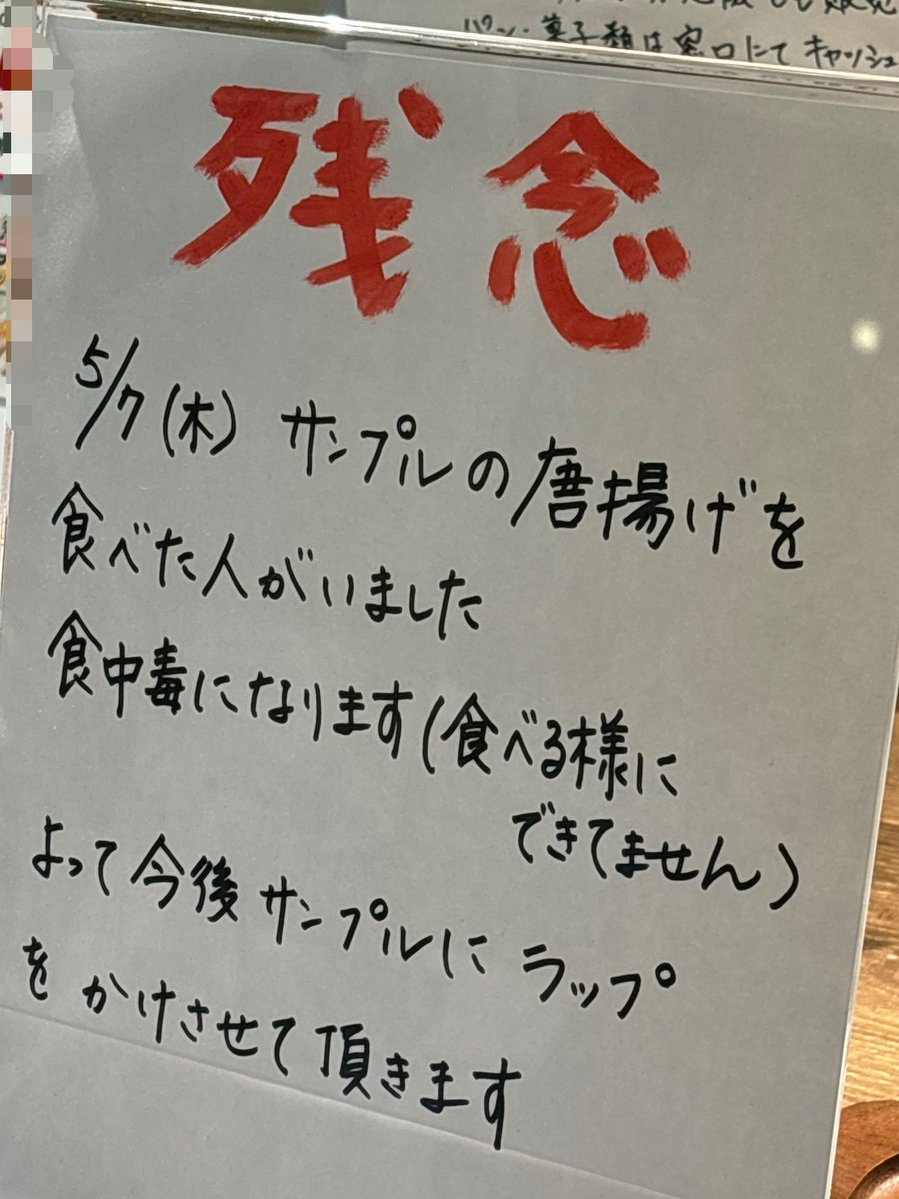 パン・菓子類は窓口にてキャッシュ
残念
5/7(木) サンプルの唐揚げを
食べた人がいました
食中毒になります(食べる様に
できてません)
よって今後サンプルにラップ
をかけさせて頂きます